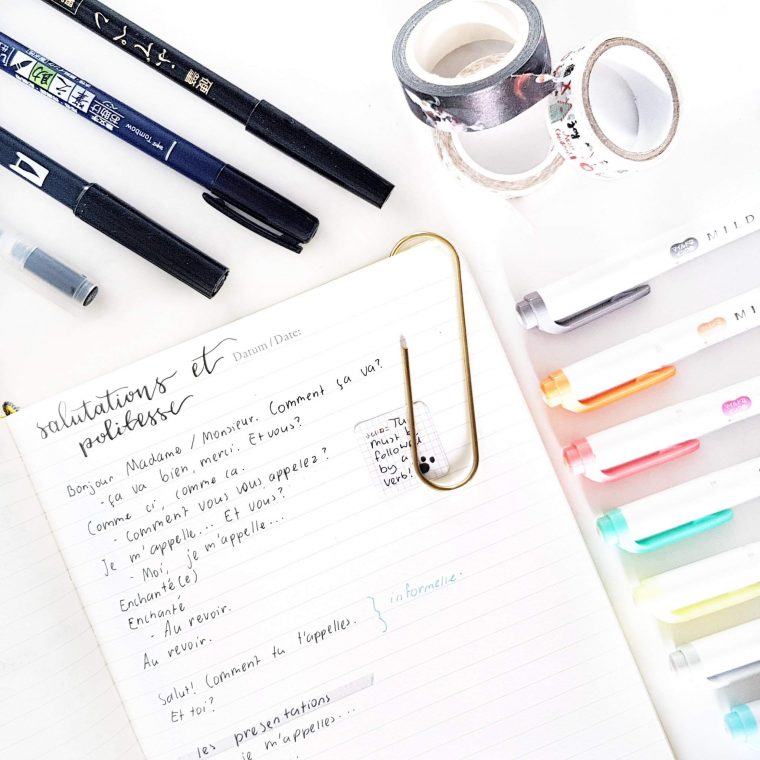 硬筆 ふでペン
お助け
Tombow
MILD
MIL
salutations et
politesse
Datum / Date:
Bonjour Madame / Monsieur. Comment ça va?
- ça va bien, merci. Et vous?
Comme ci, comme ca.
- Comment vous vous appelez?
Je m'appelle... Et vous?
- Moi, je m'appelle...
Enchanté(e)
Enchanté
- Au revoir.
Au revoir.
informelle.
Salut! Comment tu t'appelles.
Et toi?
les presentations
je m'appelles...
Tu
must be
followed
by a
verb!